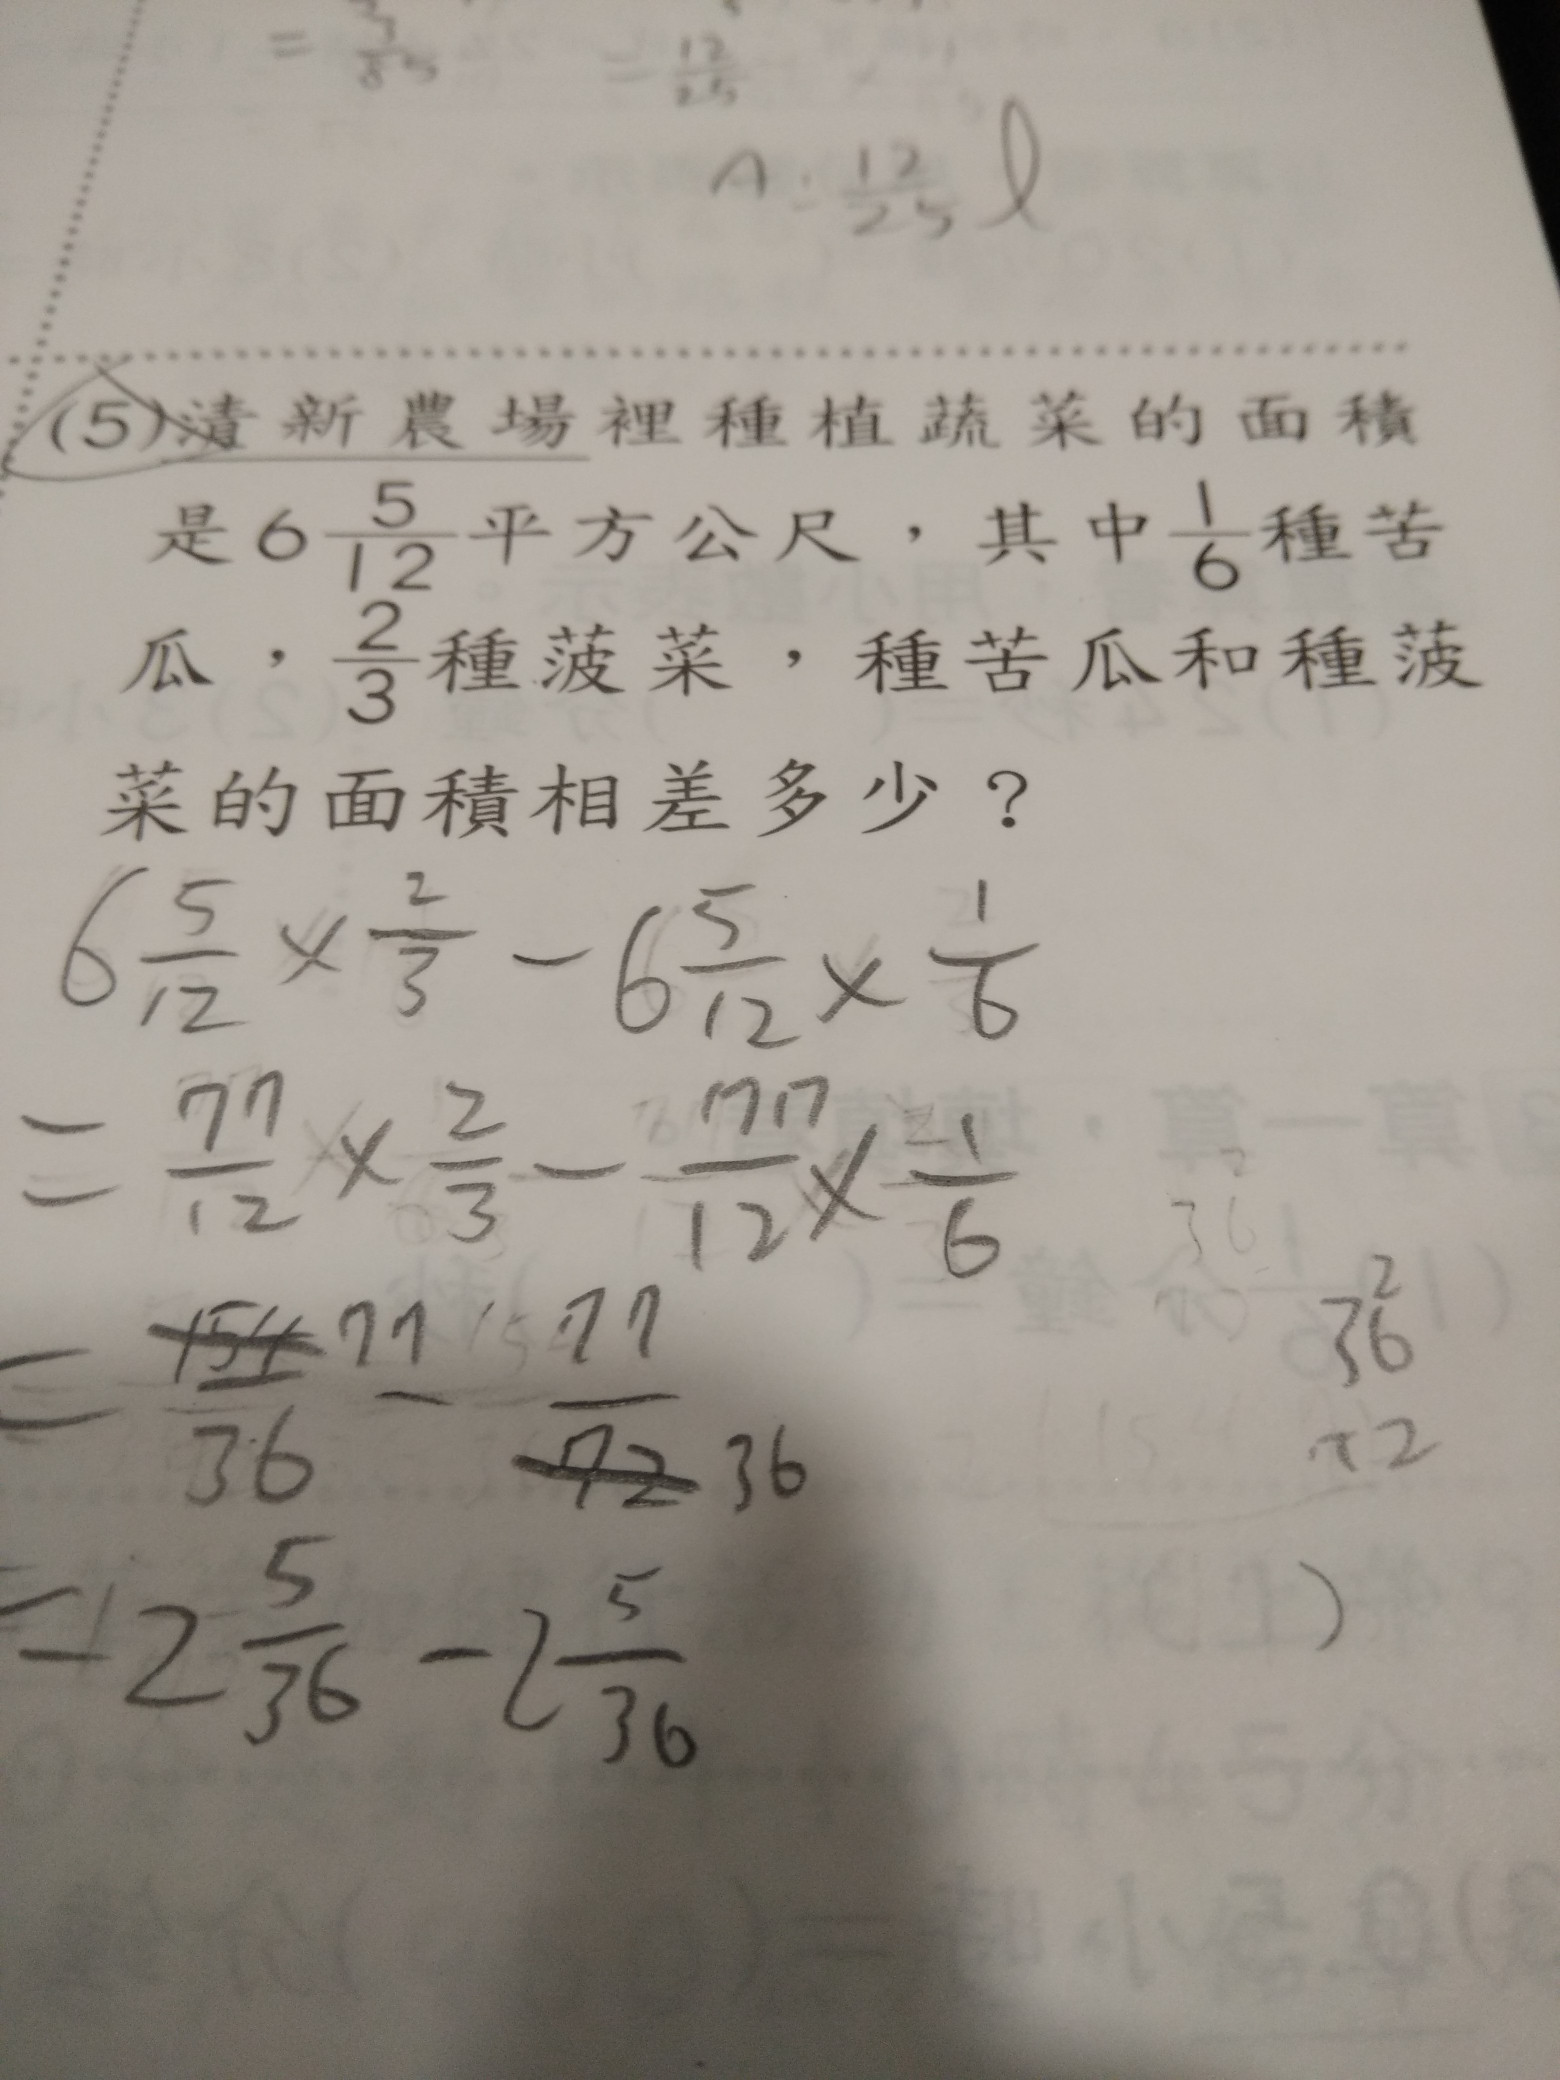 = 12/25
A: 12/25 l
(5)清新農場裡種植蔬菜的面積
是6 5/12平方公尺，其中1/6種苦
瓜，2/3種菠菜，種苦瓜和種菠
菜的面積相差多少？
6 5/12 × 2/3 - 6 5/12 × 1/6
= 77/12 × 2/3 - 77/12 × 1/6
= 154/36 77 - 77/72 36
36 2
×2
= 2 5/36 - 2 5/36